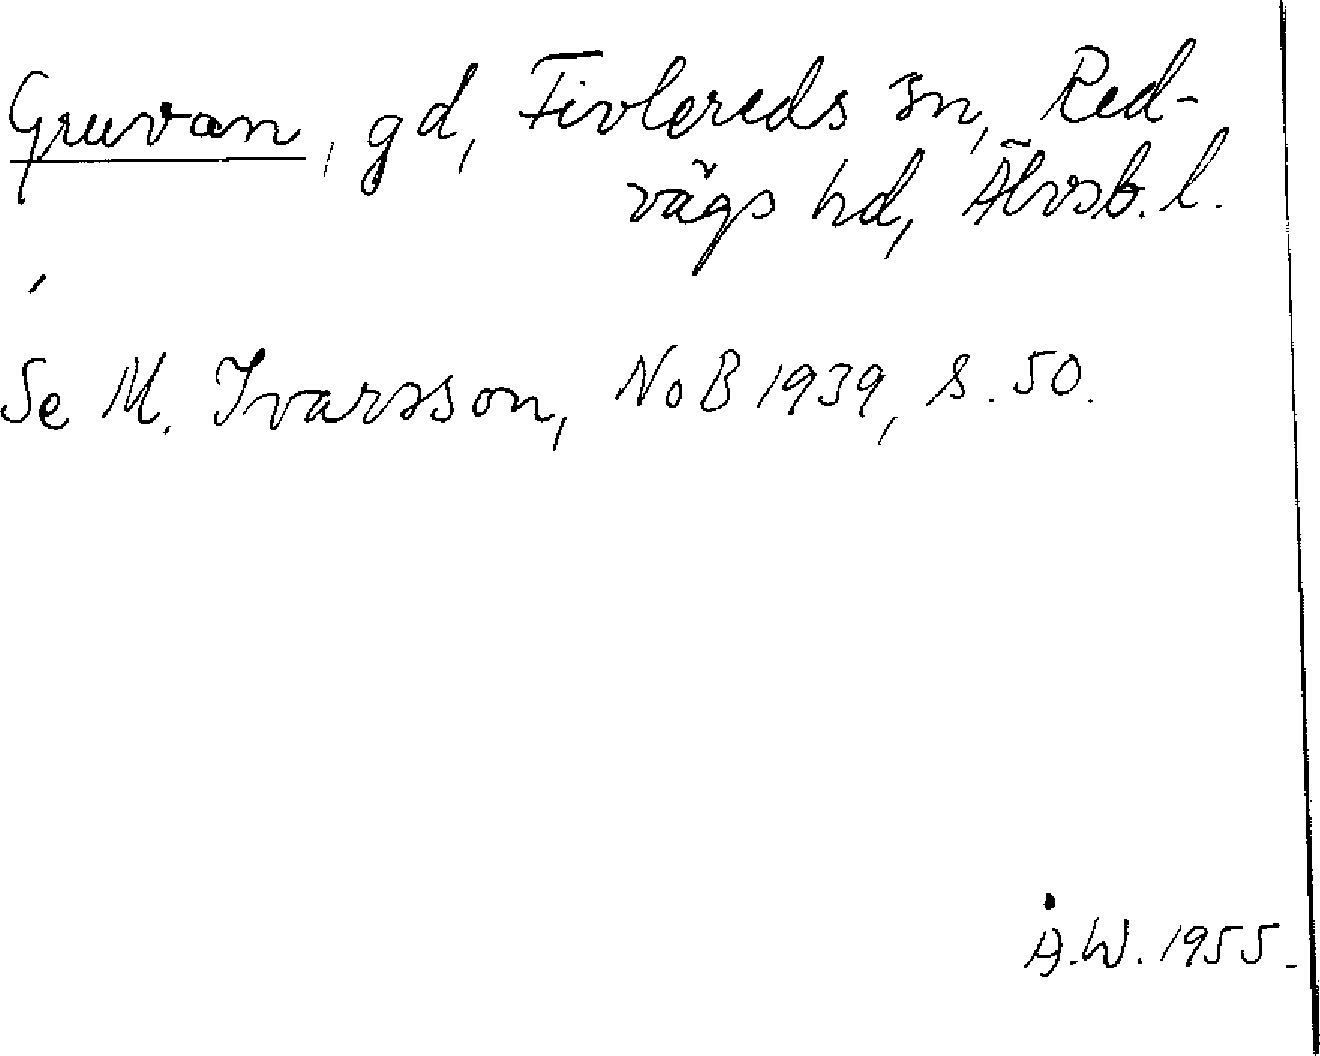 Gruvan, gd, Fivlereds sn, Red-
vägs hd, Älvsb. l.
Se M. Ivarsson, NoB 1939, s. 50.
Å.W. 1955.